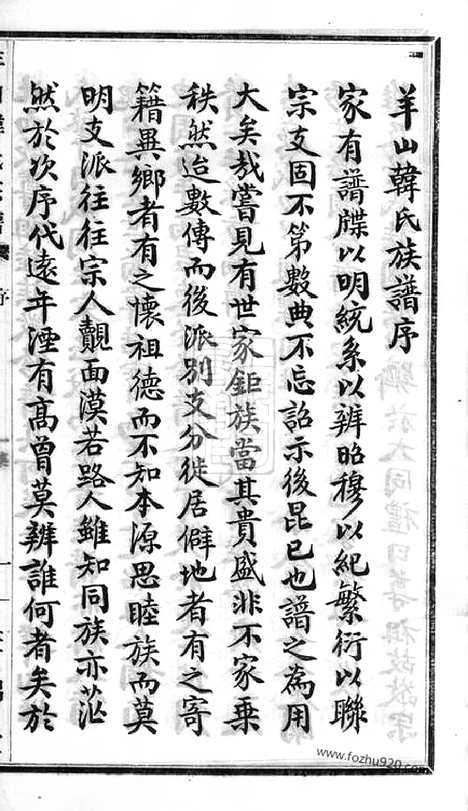 羊山韓氏族譜序
家有譜牒以明統系以辨昭穆以紀繁衍以聯
宗支固不第數典不忘詔示後昆已也譜之為用
大矣哉嘗見有世家鉅族當其貴盛非不家乗
秩然迨數傳而後派別支分徙居僻地者有之寄
籍異鄉者有之懷祖德而不知本源思睦族而莫
明支派往往宗人覿面漠若路人雖知同族亦茫
然於次序代遠年湮有高曾莫辨誰何者矣於
www.fozhu920.com